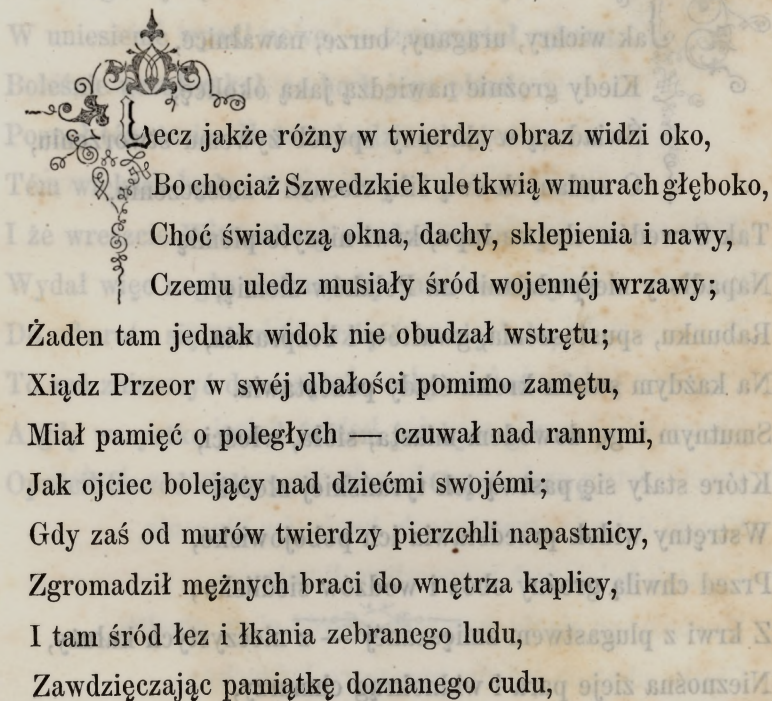 Lecz jakże różny w twierdzy obraz widzi oko,
Bo chociaż Szwedzkie kule tkwią w murach głęboko,
Choć świadczą okna, dachy, sklepienia i nawy,
Czemu uledz musiały śród wojennéj wrzawy;
Żaden tam jednak widok nie obudzał wstrętu;
Xiądz Przeor w swéj dbałości pomimo zamętu,
Miał pamięć o poległych — czuwał nad rannymi,
Jak ojciec bolejący nad dziećmi swojémi;
Gdy zaś od murów twierdzy pierzchli napastnicy,
Zgromadził mężnych braci do wnętrza kaplicy,
I tam śród łez i łkania zebranego ludu,
Zawdzięczając pamiątkę doznanego cudu,